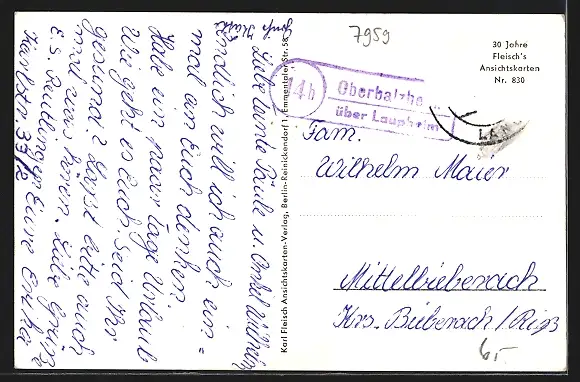 Liebe Tante Paule u. Onkel Wilhelm
Endlich will ich auch ein=
mal an Euch denken.
Habe ein paar Tage Urlaub
Wie geht es Euch. Seid Ihr
gesund? Laßt bitte auch
mal was hören. Liebe Grüße
E.S. Reutlingen Eure Erika
Karlstr. 33/2
Gruß Karl
Karl Fleisch Ansichtskarten-Verlag, Berlin-Reinickendorf 1, Emmentaler Str. 58
7959
14b
Oberbalzhe
über Laupheim
LA
30 Jahre
Fleisch's
Ansichtskarten
Nr. 830
Fam.
Wilhelm Maier
Mittelbieberach
Krs. Bieberach/Riß
6,-